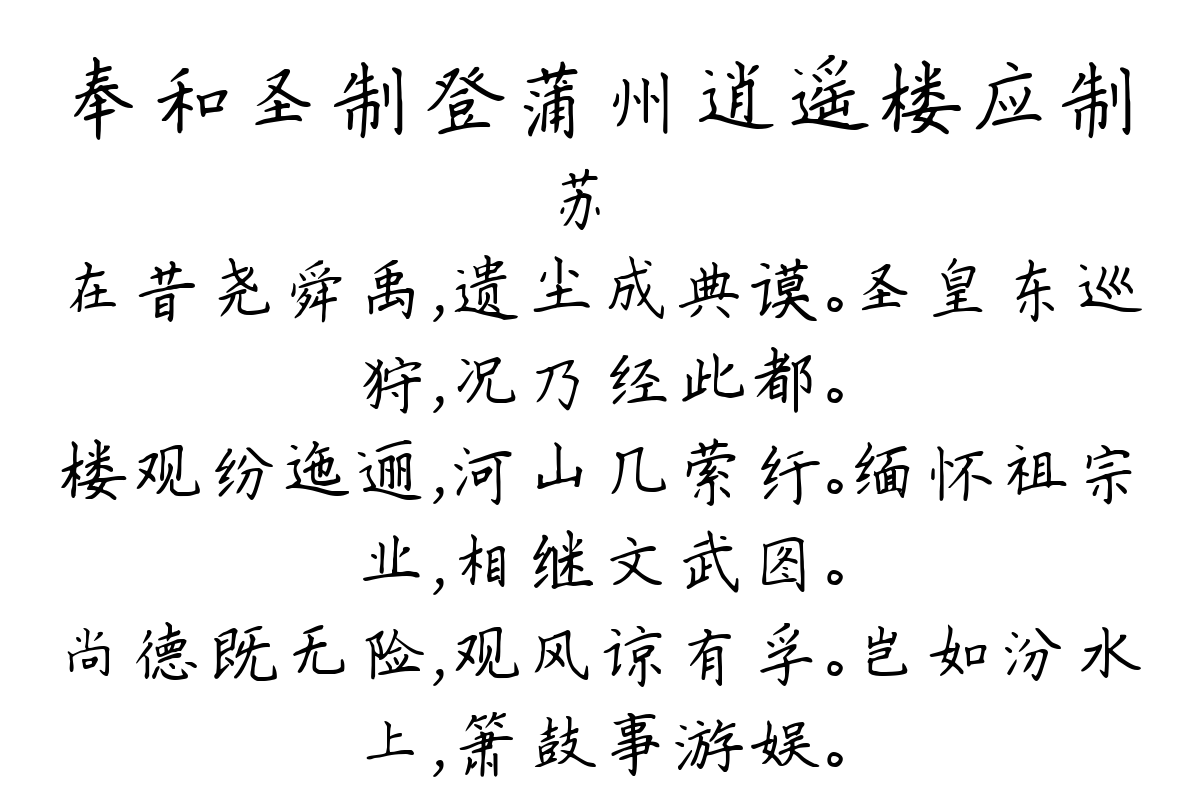 奉和圣制登蒲州逍遥楼应制
苏
在昔尧舜禹,遗尘成典谟。圣皇东巡
狩,况乃经此都。
楼观纷迤逦,河山几萦纡。缅怀祖宗
业,相继文武图。
尚德既无险,观风谅有孚。岂如汾水
上,箫鼓事游娱。